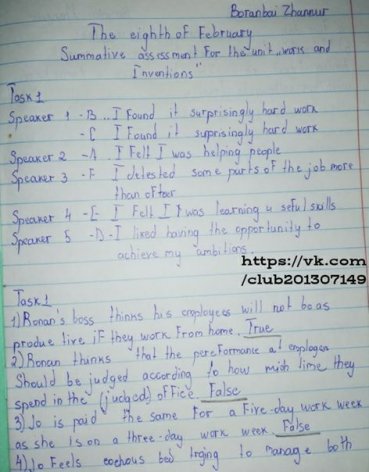 Boranbai Zhannur
The eighth of February
Summative assessment for the unit „work and
Inventions"
Task 1
Speaker 1 - B.. I Found it surprisingly hard work
- C I Found it suprisingly hard work
Speaker 2 - A. I Felt I was helping people
Speaker 3 - F I detested some parts of the job more
than ofter
Speaker 4 - E - I Felt I was learning useful skills
Speaker 5 - D - I liked having the opportunity to
achieve my ambitions.
https://vk.com
/club201307149
Task 1
1) Ronan's boss thinks his employees will not be as
produc tive iF they work From home. True
2) Ronan thinks that the performance of
Should be judged according to how much time they
spend in the (judged) office False
3) Jo is paid the same For a Five-day work week
as she is on a three-day work week False
4) Jo Feels trying to manage both